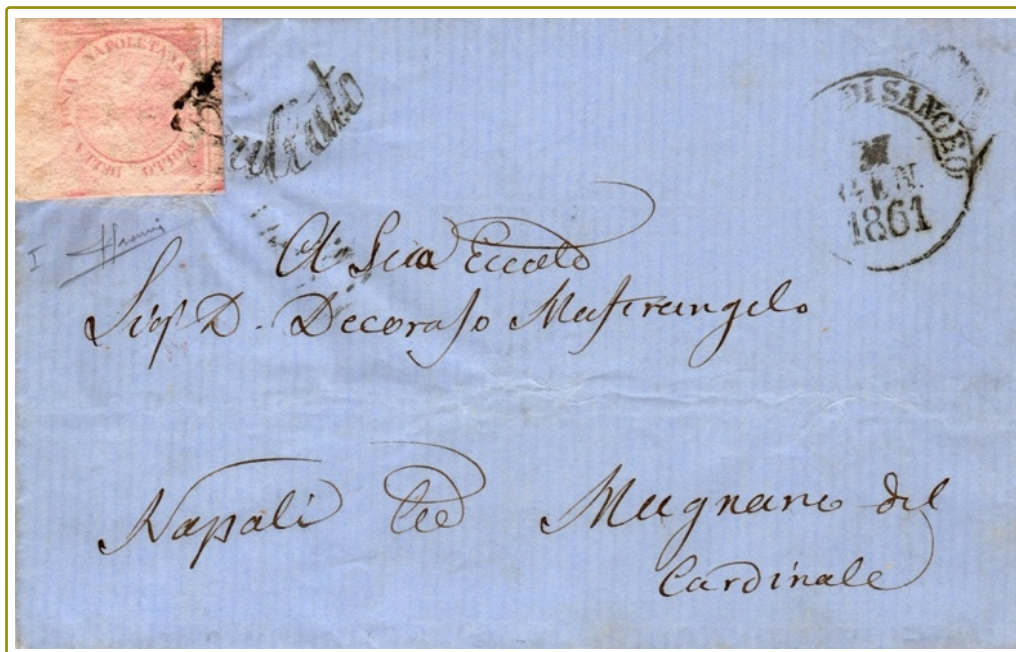 BOLLO DELLA POSTA NAPOLETANA
Annullato
DI SANGRO
GEN.
1861
A Sua Eccell
Sig. D. Decoroso Mastrangelo
Napoli per Mugnano del
Cardinale